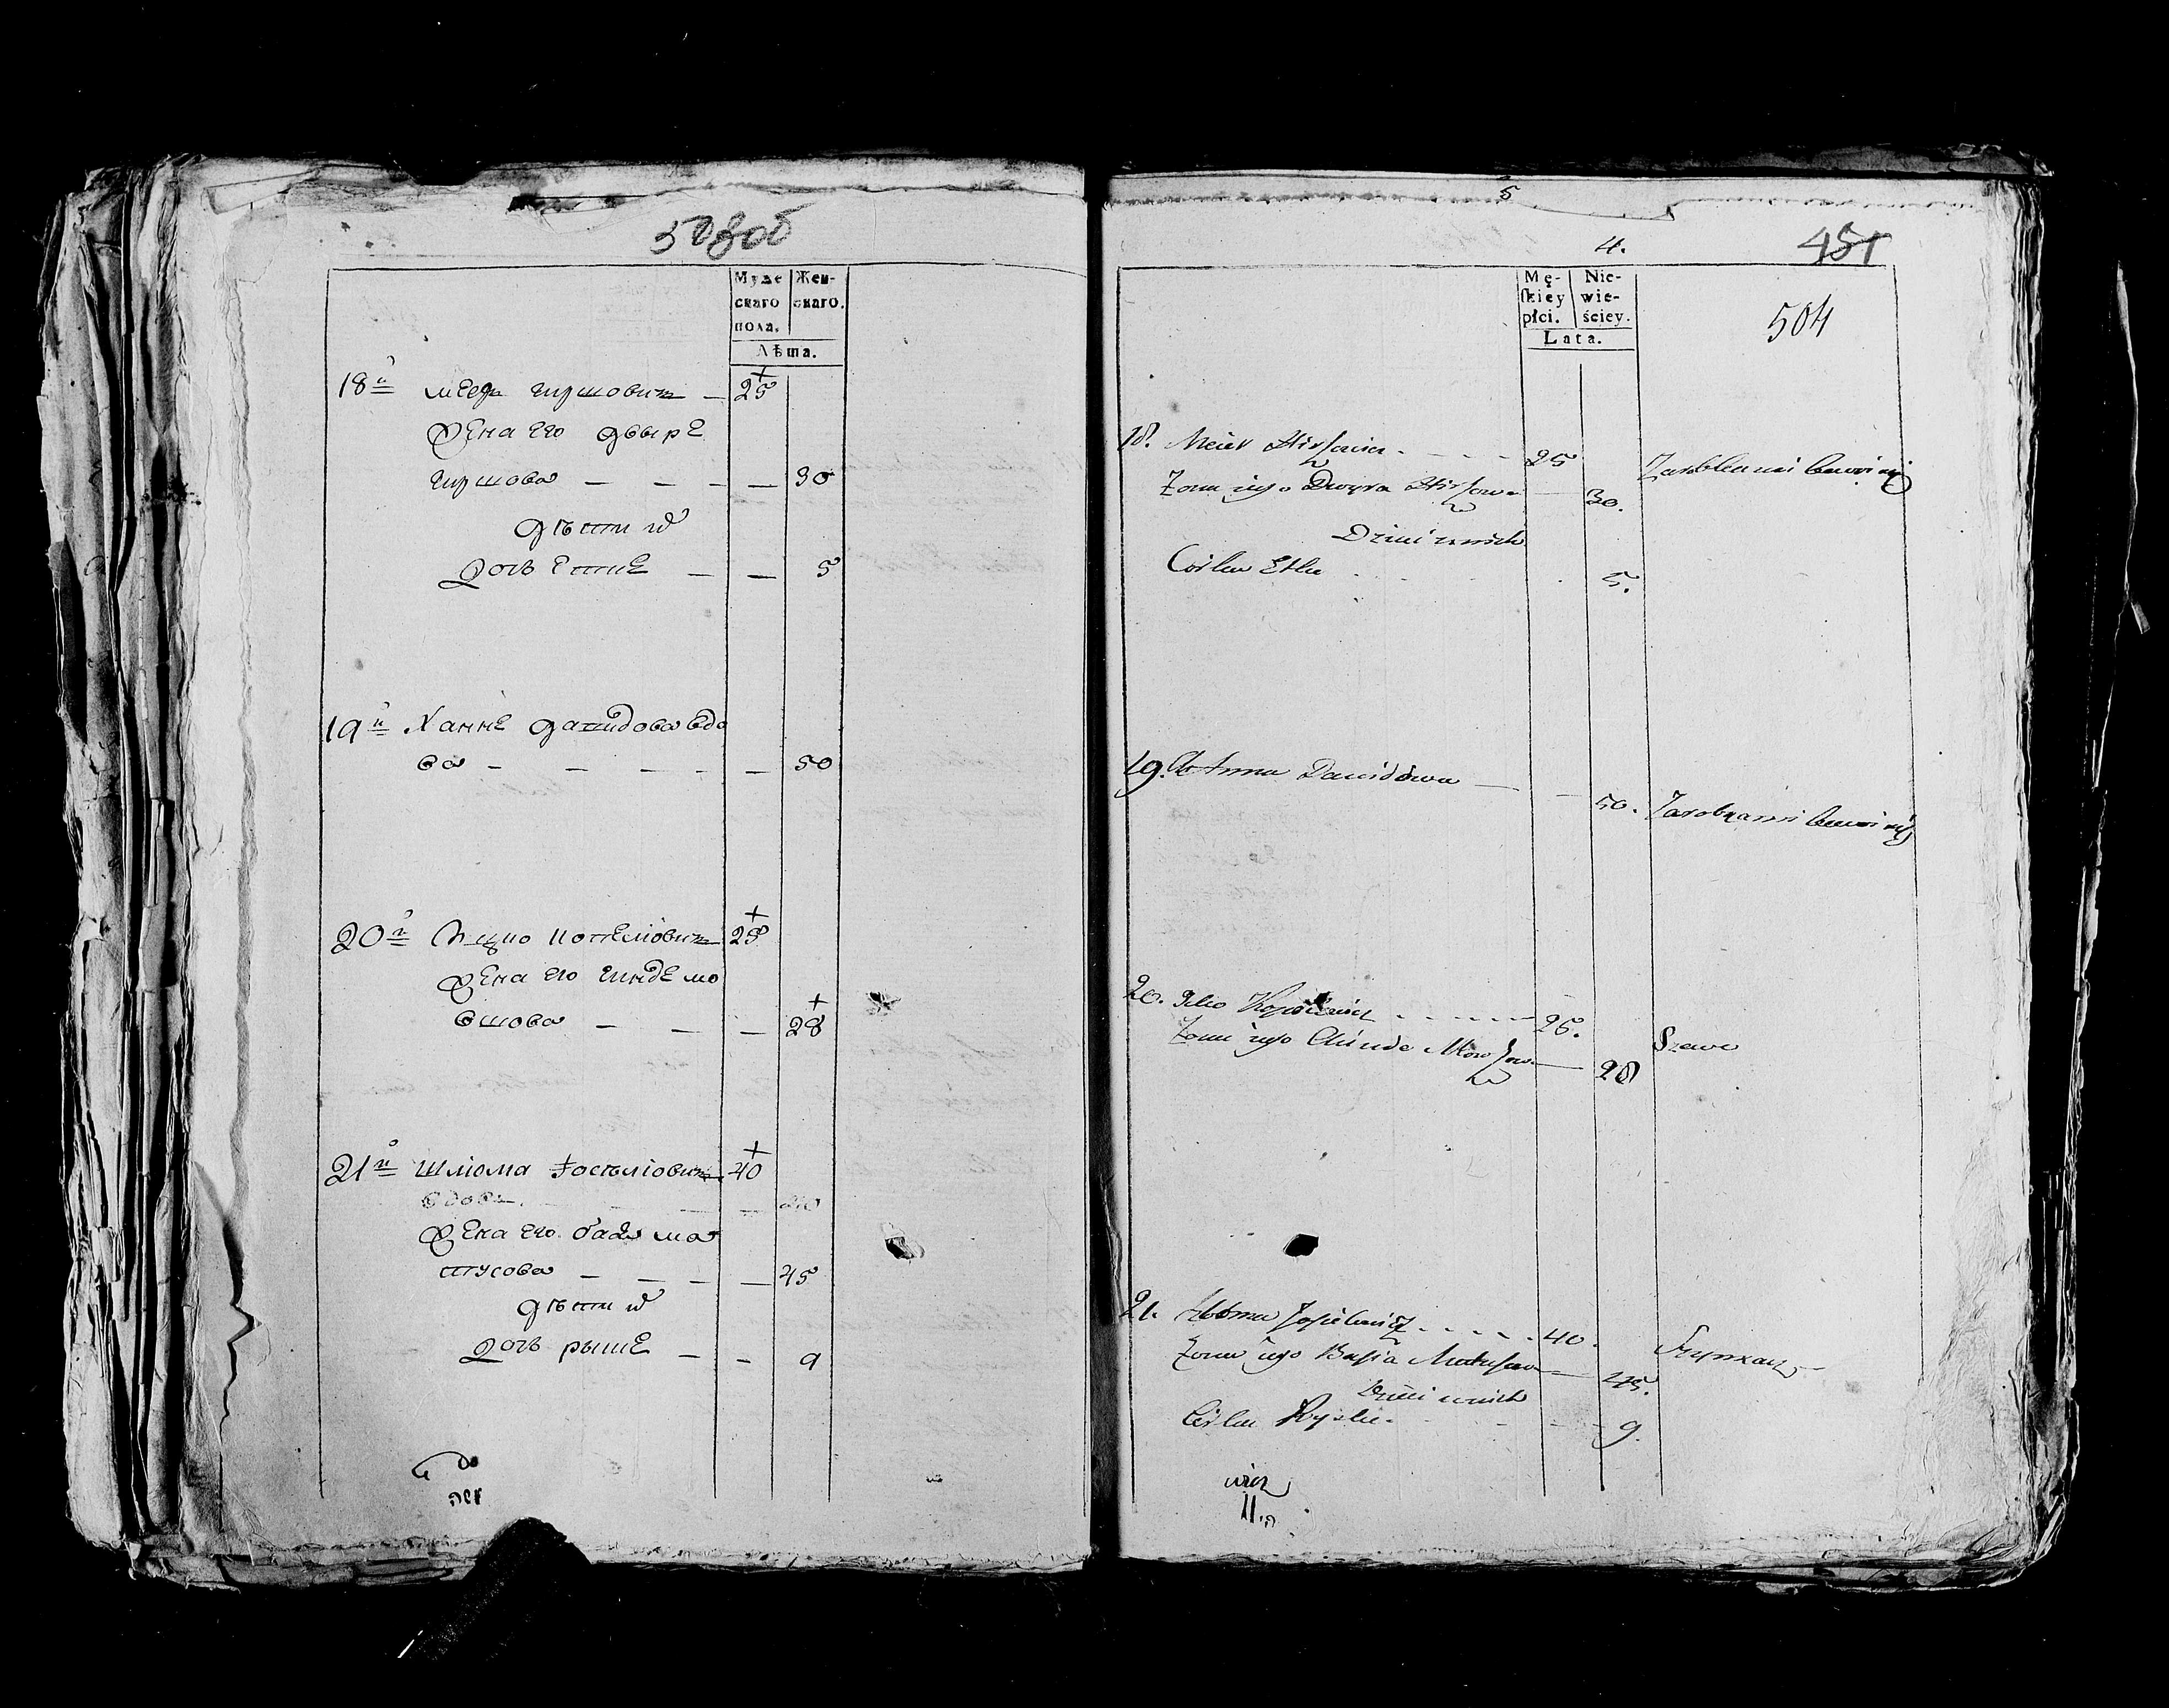 503об
Муже
скаго
пола.
Жен-
скаго.
Лѣта.
18й Меер Гиршович — 25
Жена его Двыре
Гиршова — — — — 30
Дѣти их
Дочь Етке — — 5
19й Ханне Давидова вдо
ва — — — — — 50
20й Ицко Иоселiович 25
Жена его Гинде Мо
вшова — — — 28
21й Шлiома Iоселiович 40
Жена его Бася Ма
тусова — — — — 45
Дѣти их
Дочь Рышке — — 9
5
4.
451
504
Mę-
skiey
płci.
Nie-
wie-
ściey.
Lata.
18. Meier Hirszowicz 25
Żona iego Dwyra Hirszowa 30.
Dzieci z nich
Córka Etka 5.
19. Channa Dawidowa — 50.
20. Icko 25. Szewc
Żona iego Ginda Mowszowa — 28
21. Szloma Joselowicz 40. Szynkarz
Żona iego Basia Matusowa — 45.
Dzieci z nich
Córka Ryska 9.
wicz